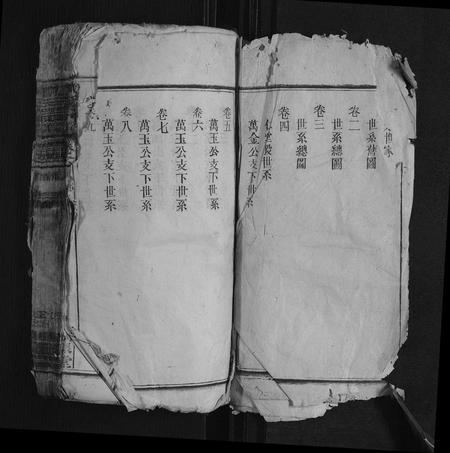 世系總圖
卷二
世系總圖
卷三
世系總圖
卷四
世系
萬金公支下世系
卷五
萬玉公支下世系
卷六
萬玉公支下世系
卷七
萬玉公支下世系
卷八
萬玉公支下世系
九